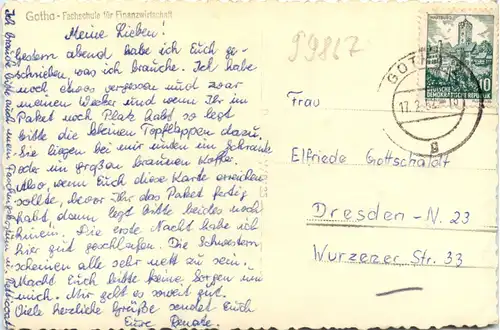 Gotha - Fachschule für Finanzwirtschaft
Meine Lieben!
Gestern abend habe ich Euch ge-
schrieben, was ich brauche. Ich habe
noch etwas vergessen und zwar
meinen Wecker und wenn Ihr im
Paket noch Platz habt so legt
bitte die kleinen Topflappen dazu.
Sie liegen bei mir unten im Schrank
oder im großen braunen Koffer.
Also, wenn Euch diese Karte erreichen
sollte, bevor Ihr das Paket fertig
habt, dann legt bitte beides noch
hinein. Die erste Nacht habe ich
hier gut geschlafen. Die Schwestern
scheinen alle sehr nett zu sein.
Macht Euch bitte keine Sorgen um
mich. Mir geht es soweit gut.
Viele herzliche Grüße sendet Euch
Eure Renate
Ich brauche bitte auch mein Faschingskostüm u.
99867
WARTBURG
DEUTSCHE
DEMOKRATISCHE REPUBLIK
10
GOTHA
17.2.62
g
Frau
Elfriede Gottschaldt
Dresden - N. 23
Wurzener Str. 33